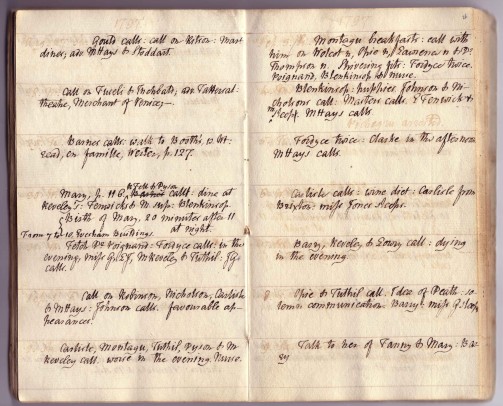 Gould calls: call on Ritson: Mart
dines; adv. MHays & Stoddart.
call on Fuseli & Inchbald; adv. Tattersal:
theatre, Merchant of Venice
Barnes calls: walk to Booth's, p.
en famille, Werter, p. 127.
Fell & Dyson
Mary, p. call: dine at
Reveley's: Fenwicks & M. sup: Blenkinsop
Birth of Mary, 20 minutes after 11
at night.
From 7 to 10, Evesham Buildings.
Fetch Dr Poignand: Fordyce calls: in the
evening, miss G, M Reveley & Tuthil:
calls.
call on Robinson, Nicholson, Carlisle
& MHays: Johnson calls. favourable ap-
pearances.
Carlisle, Montagu, Tuthil, Dyson & M
Reveley call. worse in the evening. Nurse.
Montagu breakfasts: call with
him on Wolcot n, Opie n, Lawrence n & Dr
Thompson n. Shivering fits: Fordyce twice.
Poignand, Blenkinsop & nurse.
Blenkinsop: puppies Johnson & Ni-
cholson call: Masters calls. E Fenwick &
M sleep. MHays calls
Fordyce twice: Clarke in the afternoon
MHays calls.
Carlisle calls: wine diet: Carlisle from
Brixton: miss Jones sleeps.
Barry, Reveley & Lowry call: dying
in the evening.
Opie & Tuthil call. Idea of Death: so-
lemn communication. Barry: miss G. sleeps
Talk to her of Fanny & Mary: Bar
ry